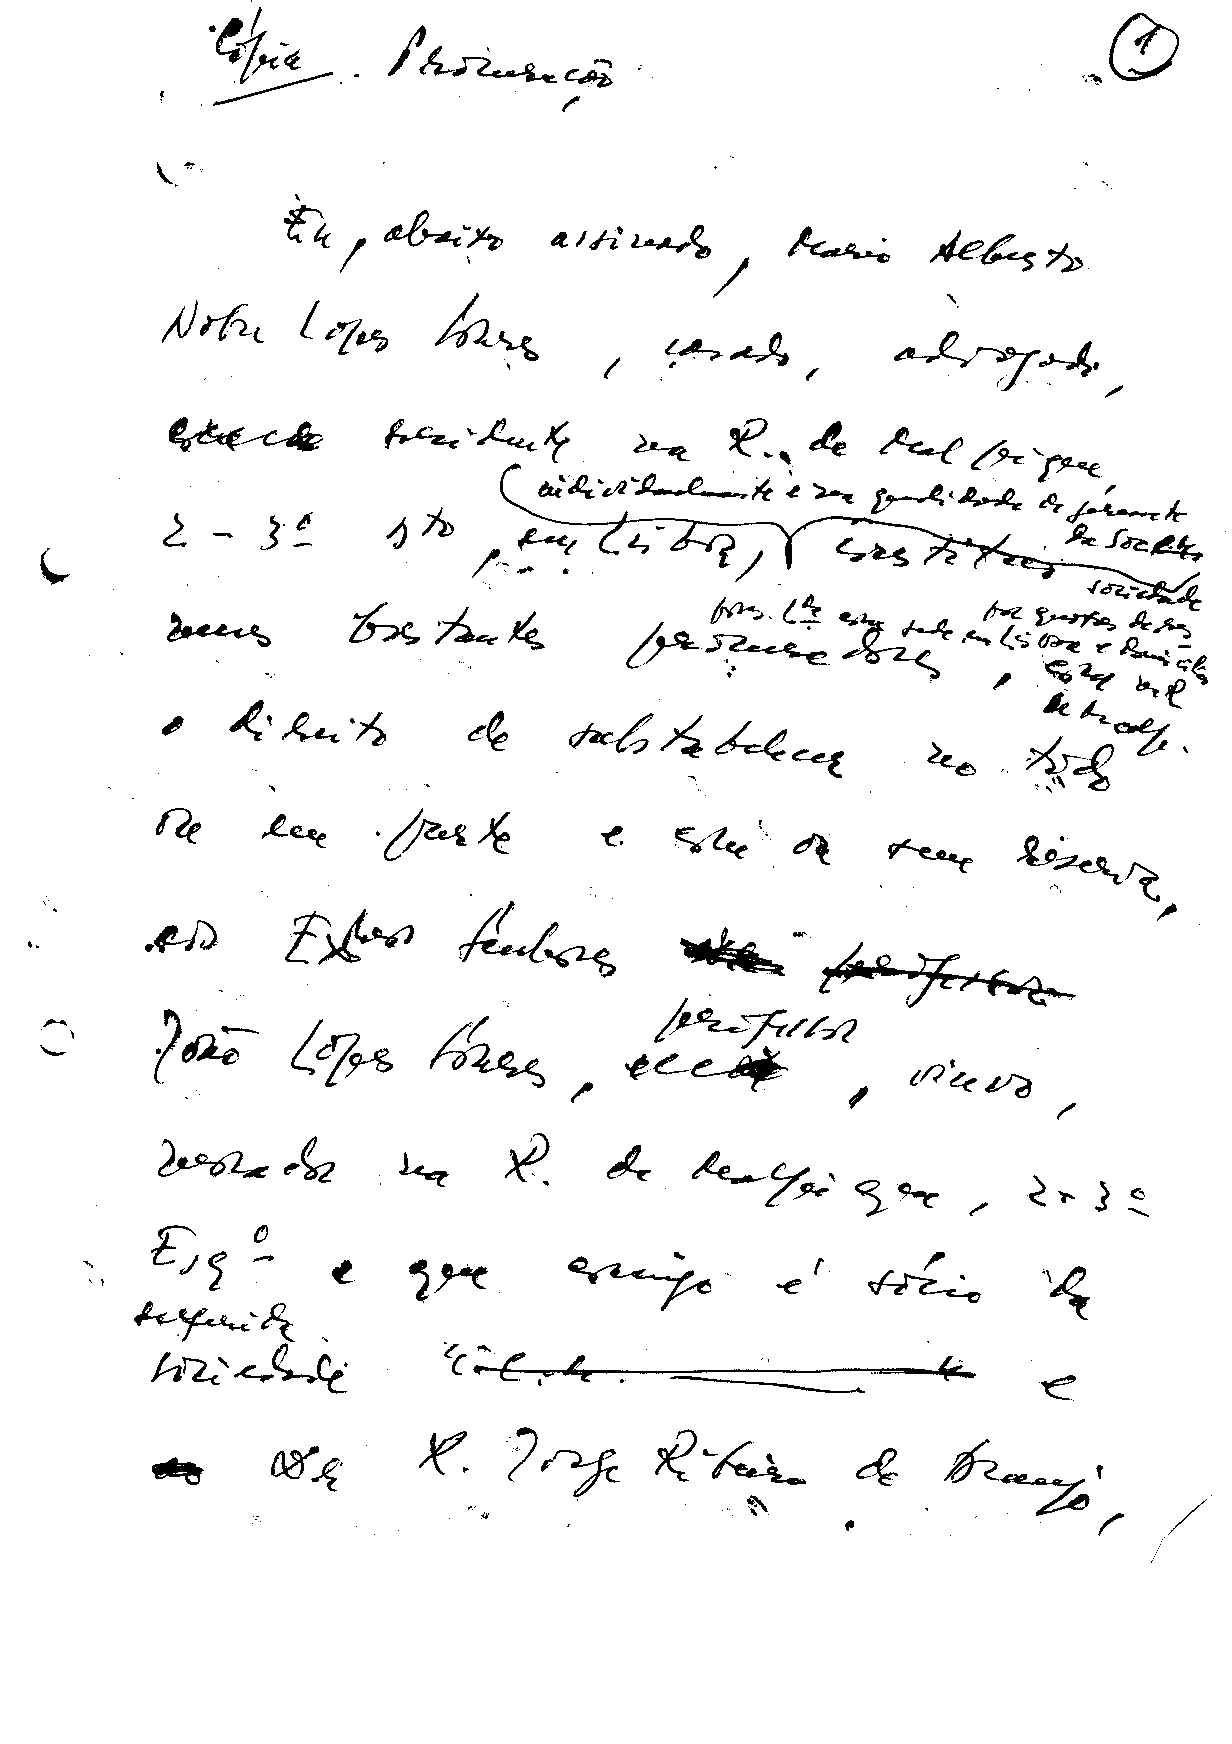 Cópia. Procuração
1
Eu, abaixo assinado, Mario Alberto
Nobre Lopes Soares, casado, advogado,
residente na R. de Malpique,
individualmente e na qualidade de gerente
da Sociedade
2 - 3º Dto, em Lisboa, constituo
sociedade
por quotas de resp. Lda com sede em Lisboa e domicílio
meus bastantes procuradores, com
o direito de substabelecer no todo
ou em parte e com ou sem reserva,
aos Exmos Senhores
professor
João Lopes Soares, viuvo,
morador na R. de Malpique, 2 - 3º
Esqº e que comigo é sócio da
referida
sociedade e
Dr. R. Jorge Ribeiro de Araujo,